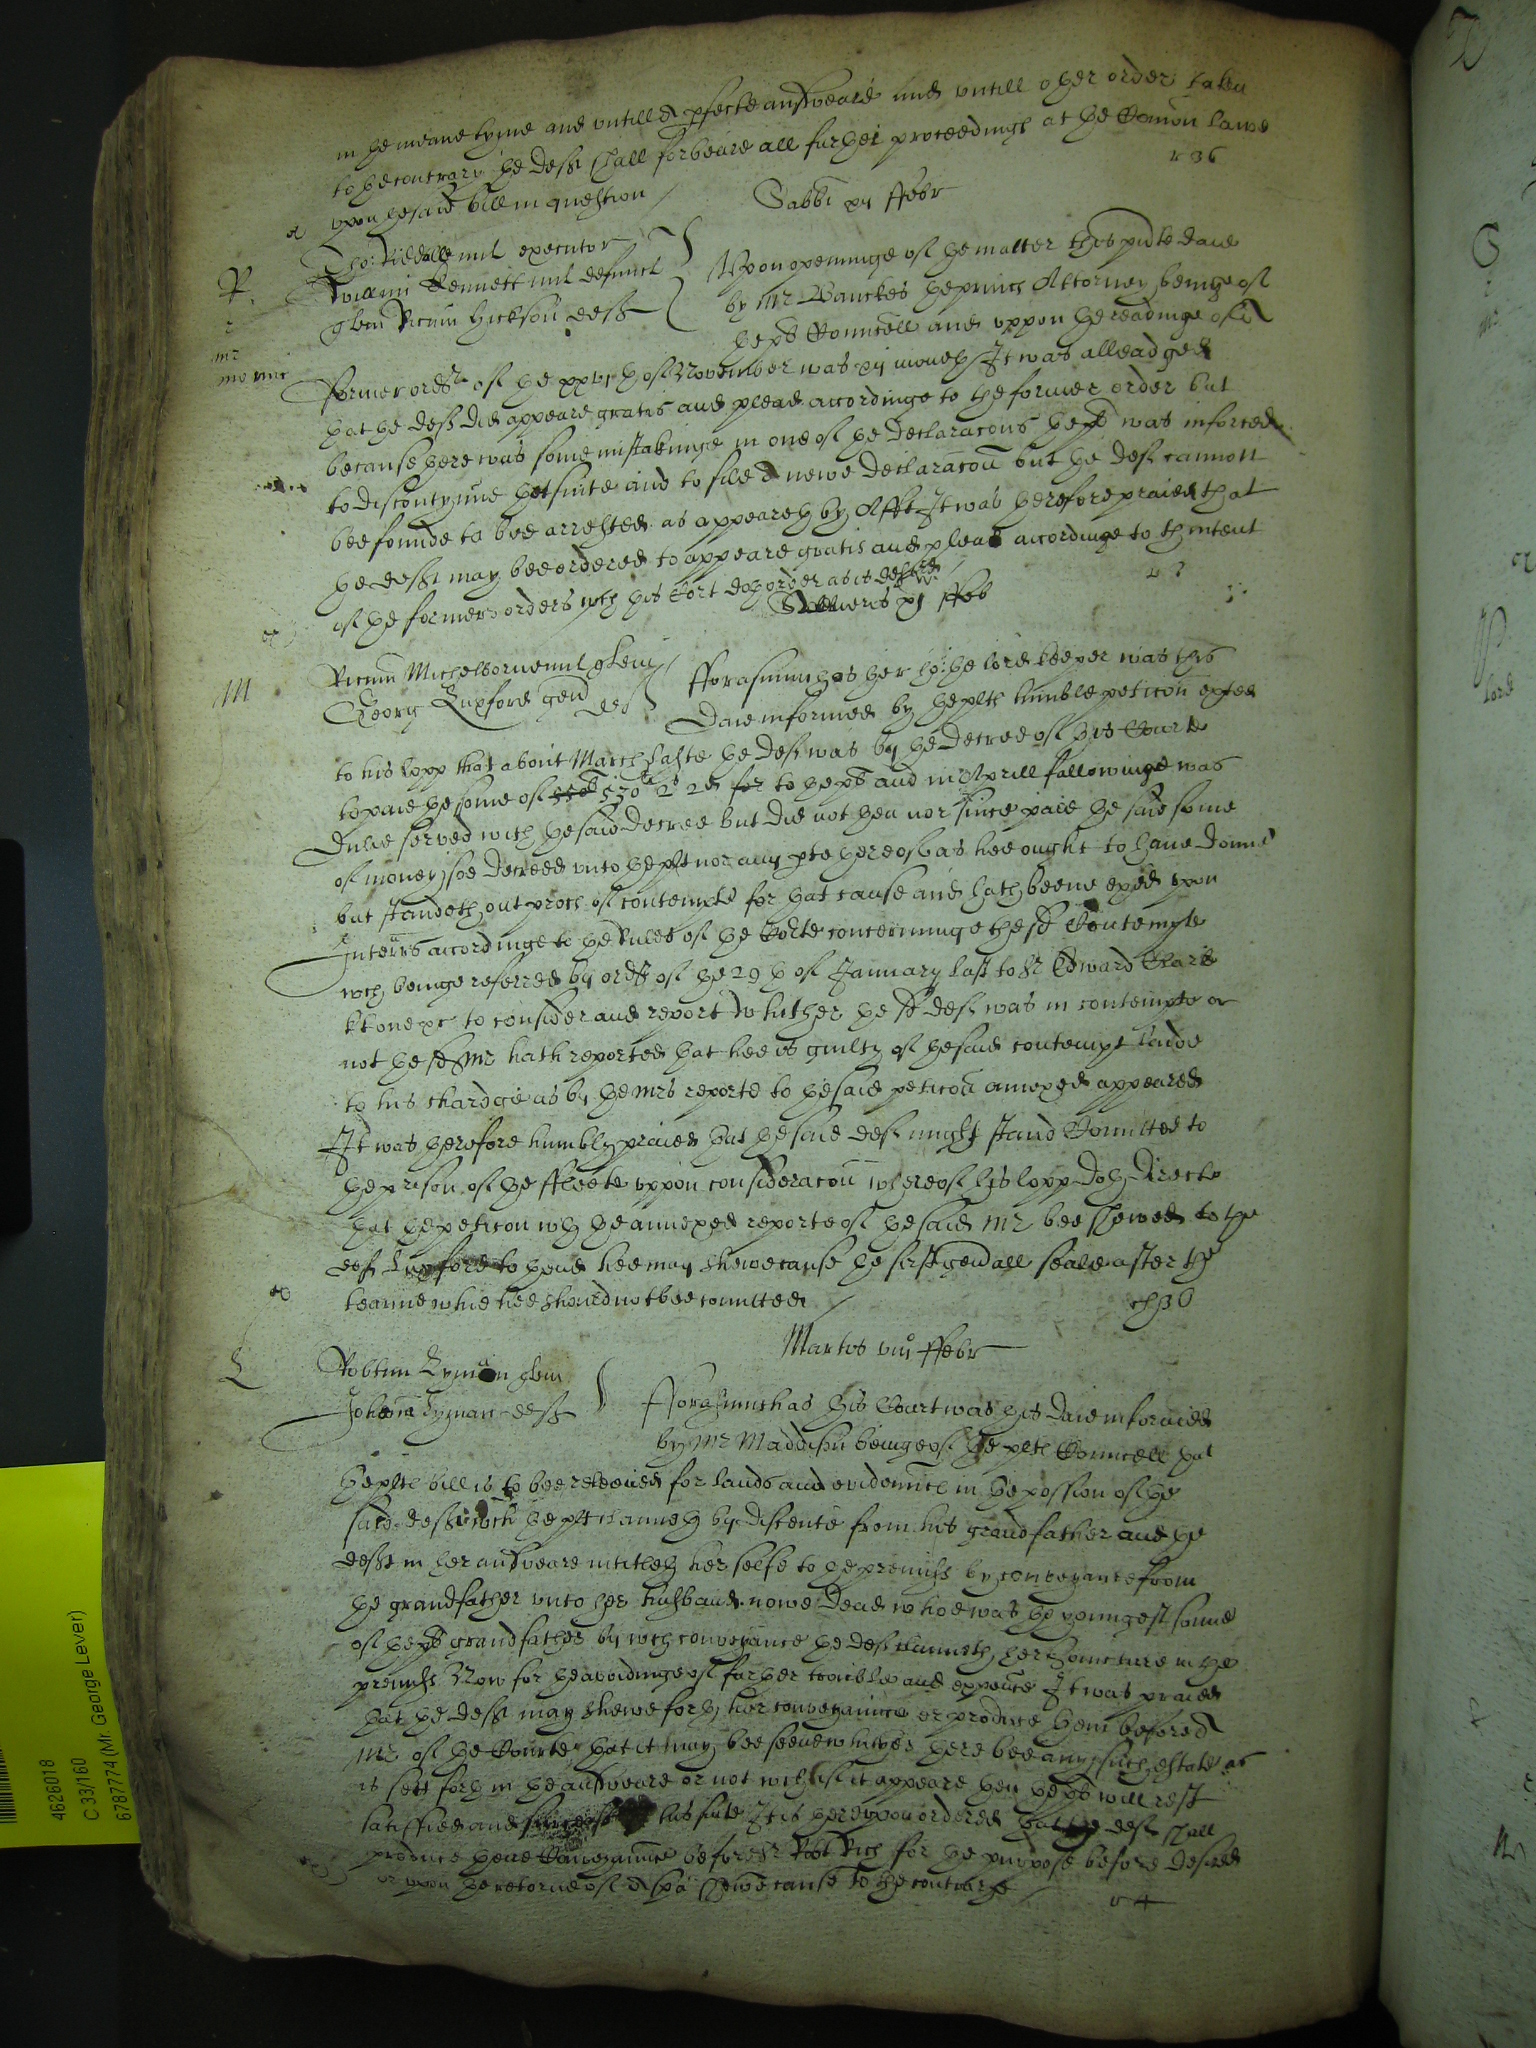 in the meane tyme and untill a pfecte answeare and untill other order taken
to the contrary the deft shall forbeare all further proceedings at the Comon lawe
upon the said bill in question
r 36
Sabbi xij ffebr
Tho: mil executor
Willmi Bennett mil defunct
quer Ricum Hickson deft
Upon openinge of the matter this pnte daie
by Mr Banckes the princs Attorney beinge of
the plts Councell and uppon the readinge of a
former ordr of the xxvjth of November was xij moneth It was alleadged
that the deft did appeare gratis and plead accordinge to the former order but
because there was some mistakinge in one of the declaracons the plt was inforced
to discontynue that suite and to file a newe declaracon but the deft cannott
bee founde to bee arrested as appeareth by Afft It was therefore praied that
the deft may bee ordered to appeare gratis and plead accordinge to thintent
of the former orders wch this Cort doth order as is desired
Veneris xj ffeb
Ricum Michelborne mil quer
Georg Luxford gen def
fforasmuch as the r: ho: the lord keeper was this
daie informed by the plts humble peticon exhted
to his lopp that about March laste the deft was by the decree of this Courte
to paie the some of 530 li 2s 2d to the plt and in Aprill followinge was
dulie served with the said decree but did not then nor since paie the said some
of money soe decreed unto the plt nor any pte thereof as hee ought to have donne
but standeth out proces of contempte for that cause and hath beene exed upon
Interrs accordinge to the Rules of the Corte concerninge the sd Contempte
wch beinge referred by ordr of the 29th of January last to Sr Edward Clark
kt one &c to consider and report whither the sd deft was in contempte or
not the sd Mr hath reported that hee is guilty of the said contempt laide
to his chardge as by the Mrs reporte to the said peticon annexed appeared
It was therefore humbly praied that the said deft might stand Comitted to
the prison of the ffleete uppon consideracon whereof his lopp doth directe
that the peticon wth the annexed reporte of the said Mr bee shewed to the
deft Luxford to thend hee may shewe cause the first genall seale after the
tearme whie hee should not bee comitted
Martis viij ffebr
Robtum Lyman quer
Lyman deft
fforasmuch as this Court was this daie informed
by Mr Maddison beinge of the plts Councell that
the plts bill is to bee releeved for lands and evidences in the possion of the
said deft wch the plt claimeth by discente from his grandfather and the
deft in her answeare intitleth her selfe to the premiss by conveyance from
the grandfather unto her husband nowe dead whoe was the youngest sonne
of the plts grandfather by wch conveyance the deft claimeth her Joincture in the
premiss Now for the avoidinge of further trouble and expence It was praied
that the deft may shewe forth her conveyance or produce them before a
Mr of the Courte that it may bee seene whither there bee any such estate as
is sett forth in the answeare or not wch if it appeare then the plt will rest
satisfied and his suite It is thereuppon ordered that the deft shall
produce the Conveyance before Sr Robt Rich for the purpose before desired
or upon the retorne of a spa shewe cause to the contrarye
r 4
4626018
C 33/160
6787774 (Mr. George Lever)